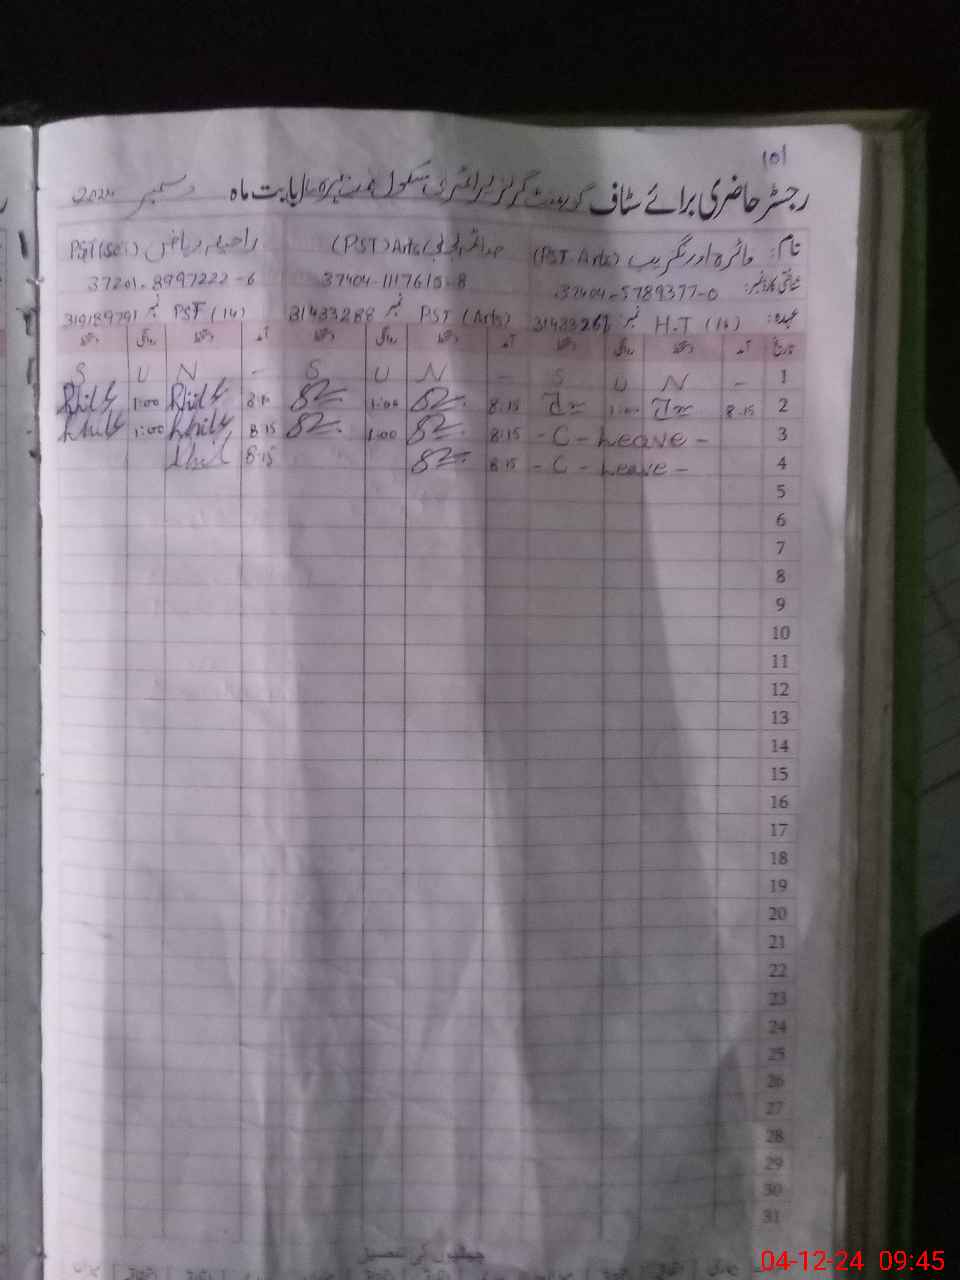 101
رجسٹر حاضری برائے سٹاف گورنمنٹ گرلز پرائمری سکول بابت ماہ دسمبر 2024
نام: مائرہ اورنگزیب (PST Arts) (PST) Arts راحیلہ ریاض PST(Sci)
شناختی کارڈ نمبر: 37404-5789377-0 37404-1117615-8 37201-8997222-6
عہدہ: H.T (16) نمبر 31433266 PST (Arts) نمبر 31433288 PST (14) نمبر 319189791
تاریخ آمد دستخط روانگی دستخط آمد دستخط روانگی دستخط آمد دستخط روانگی دستخط
1 - N U S - N U S - N U S
2 8.15 1:00 8.15 1:00 1:00
3 - C - Leave - 8.15 1:00 8.15 1:00
4 - C - Leave - 8.15 8.15
5
6
7
8
9
10
11
12
13
14
15
16
17
18
19
20
21
22
23
24
25
26
27
28
29
30
31
04-12-24 09:45